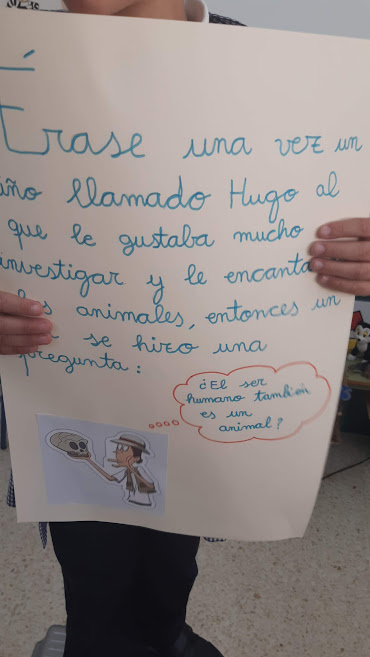 Érase una vez un
niño llamado Hugo al
que le gustaba mucho
investigar y le encanta
los animales, entonces un
se hizo una
pregunta:
¿El ser
humano también
es un
animal?